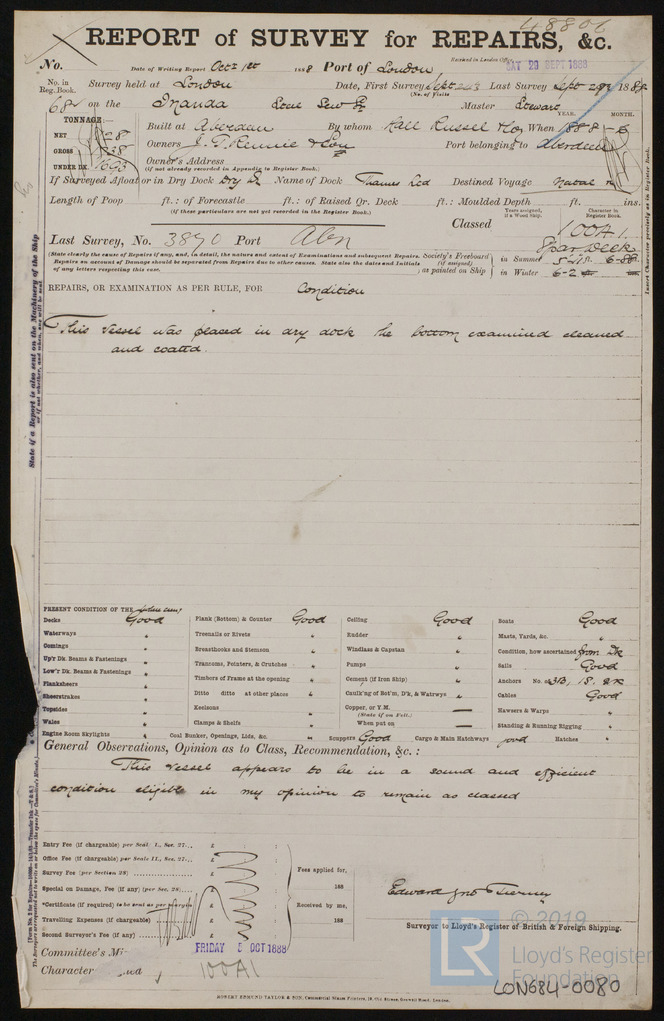 48806
REPORT of SURVEY for REPAIRS, &c.
No. Date of Writing Report Octr 1st 1888 Port of London Received in London Office SAT 29 SEPT 1888
No. in Reg. Book. Survey held at London Date, First Survey Sept Last Survey Sept 1888
(No. of Visits
68 on the Inanda Steel Screw Master Stewart
TONNAGE:— YEAR. MONTH.
NET Built at Aberdeen By whom Hall Russell & Co, When 1888-6
GROSS Owners J. T. Rennie & Son Port belonging to Aberdeen
UNDER DK. 1693 Owner's Address
(if not already recorded in Appendix to Register Book.)
If Surveyed Afloat or in Dry Dock Dry Dk Name of Dock Thames Destined Voyage Natal
Length of Poop ft.: of Forecastle ft.: of Raised Qr. Deck ft.: Moulded Depth ft. ins.
(If these particulars are not yet recorded in the Register Book.)
Years assigned, if a Wood Ship. Character in Register Book.
Classed 100A1.
Last Survey, No. 3890 Port Abn Spar Deck
(State clearly the cause of Repairs if any, and, in detail, the nature and extent of Examinations and subsequent Repairs. Repairs on account of Damage should be separated from Repairs due to other causes. State also the dates and Initials of any letters respecting this case.
Society's Freeboard (if assigned) as painted on Ship
in Summer 6-88
in Winter 6-2
Insert Character precisely as in Register Book.
REPAIRS, OR EXAMINATION AS PER RULE, FOR Condition
This vessel was placed in dry dock the bottom examined cleaned
and coated.
State if a Report is also sent on the Machinery of the Ship
or if not whether, and when, one will be sent.
PRESENT CONDITION OF THE
Decks Good
Waterways "
Comings "
Up'r Dk. Beams & Fastenings "
Low'r Dk. Beams & Fastenings "
Planksheers "
Sheerstrakes "
Topsides "
Wales "
Engine Room Skylights "
Plank (Bottom) & Counter Good
Treenails or Rivets "
Breasthooks and Stemson "
Transoms, Pointers, & Crutches "
Timbers of Frame at the opening "
Ditto ditto at other places "
Keelsons "
Clamps & Shelfs "
Coal Bunker, Openings, Lids, &c. "
Ceiling Good
Rudder "
Windlass & Capstan "
Pumps "
Cement (if Iron Ship) "
Caulk'ng of Bot'm, D'k, & Watrwys "
Copper, or Y.M. —
(State if on Felt.)
When put on —
Scuppers Good Cargo & Main Hatchways good
Boats Good
Masts, Yards, &c. "
Condition, how ascertained from Dk
Sails Good
Anchors No. 3B, 1S, 2K
Cables Good
Hawsers & Warps "
Standing & Running Rigging "
Hatches "
General Observations, Opinion as to Class, Recommendation, &c.:
This vessel appears to be in a sound and efficient
condition eligible in my opinion to remain as classed
Entry Fee (if chargeable) per Scale I., Sec. 27... £
Office Fee (if chargeable) per Scale II., Sec. 27... £
Survey Fee (per Section 28) £
Special on Damage, Fee (if any) (per Sec. 28) £
*Certificate (if required) to be sent as per £
Travelling Expenses (if chargeable) £
Second Surveyor's Fee (if any) £
Fees applied for,
188
Received by me,
188
Edward Jno Tierney
Surveyor to Lloyd's Register of British & Foreign Shipping.
Committee's Mi
FRIDAY 5 OCT 1888
Character 100A1
LR © 2019
Lloyd's Register
Foundation
LON684-0080
ROBERT EDMUND TAYLOR & SON, Commercial Steam Printers, 19, Old Street, Goswell Road, London.